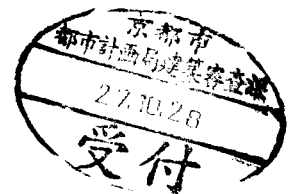 京都市
都市計画局建築審査課
27.10.28
受付